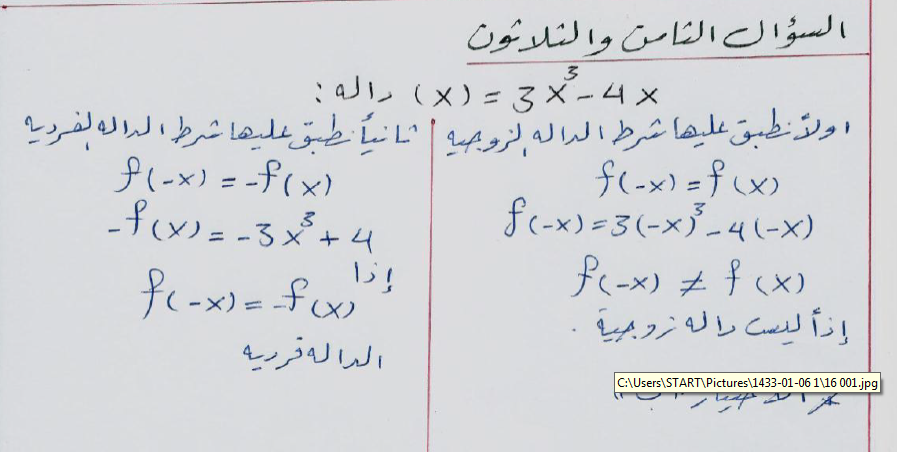 السؤال الثامن والثلاثون
(x) = 3x³ - 4x داله :
اولاً نطبق عليها شرط الداله الزوجيه
f(-x) = f(x)
f(-x) = 3(-x)³ - 4(-x)
f(-x) ≠ f(x)
إذاً ليست داله زوجية .
ثانياً نطبق عليها شرط الداله الفرديه
f(-x) = -f(x)
-f(x) = -3x³ + 4
إذا
f(-x) = -f(x)
الداله فرديه
C:\Users\START\Pictures\1433-01-06 1\16 001.jpg